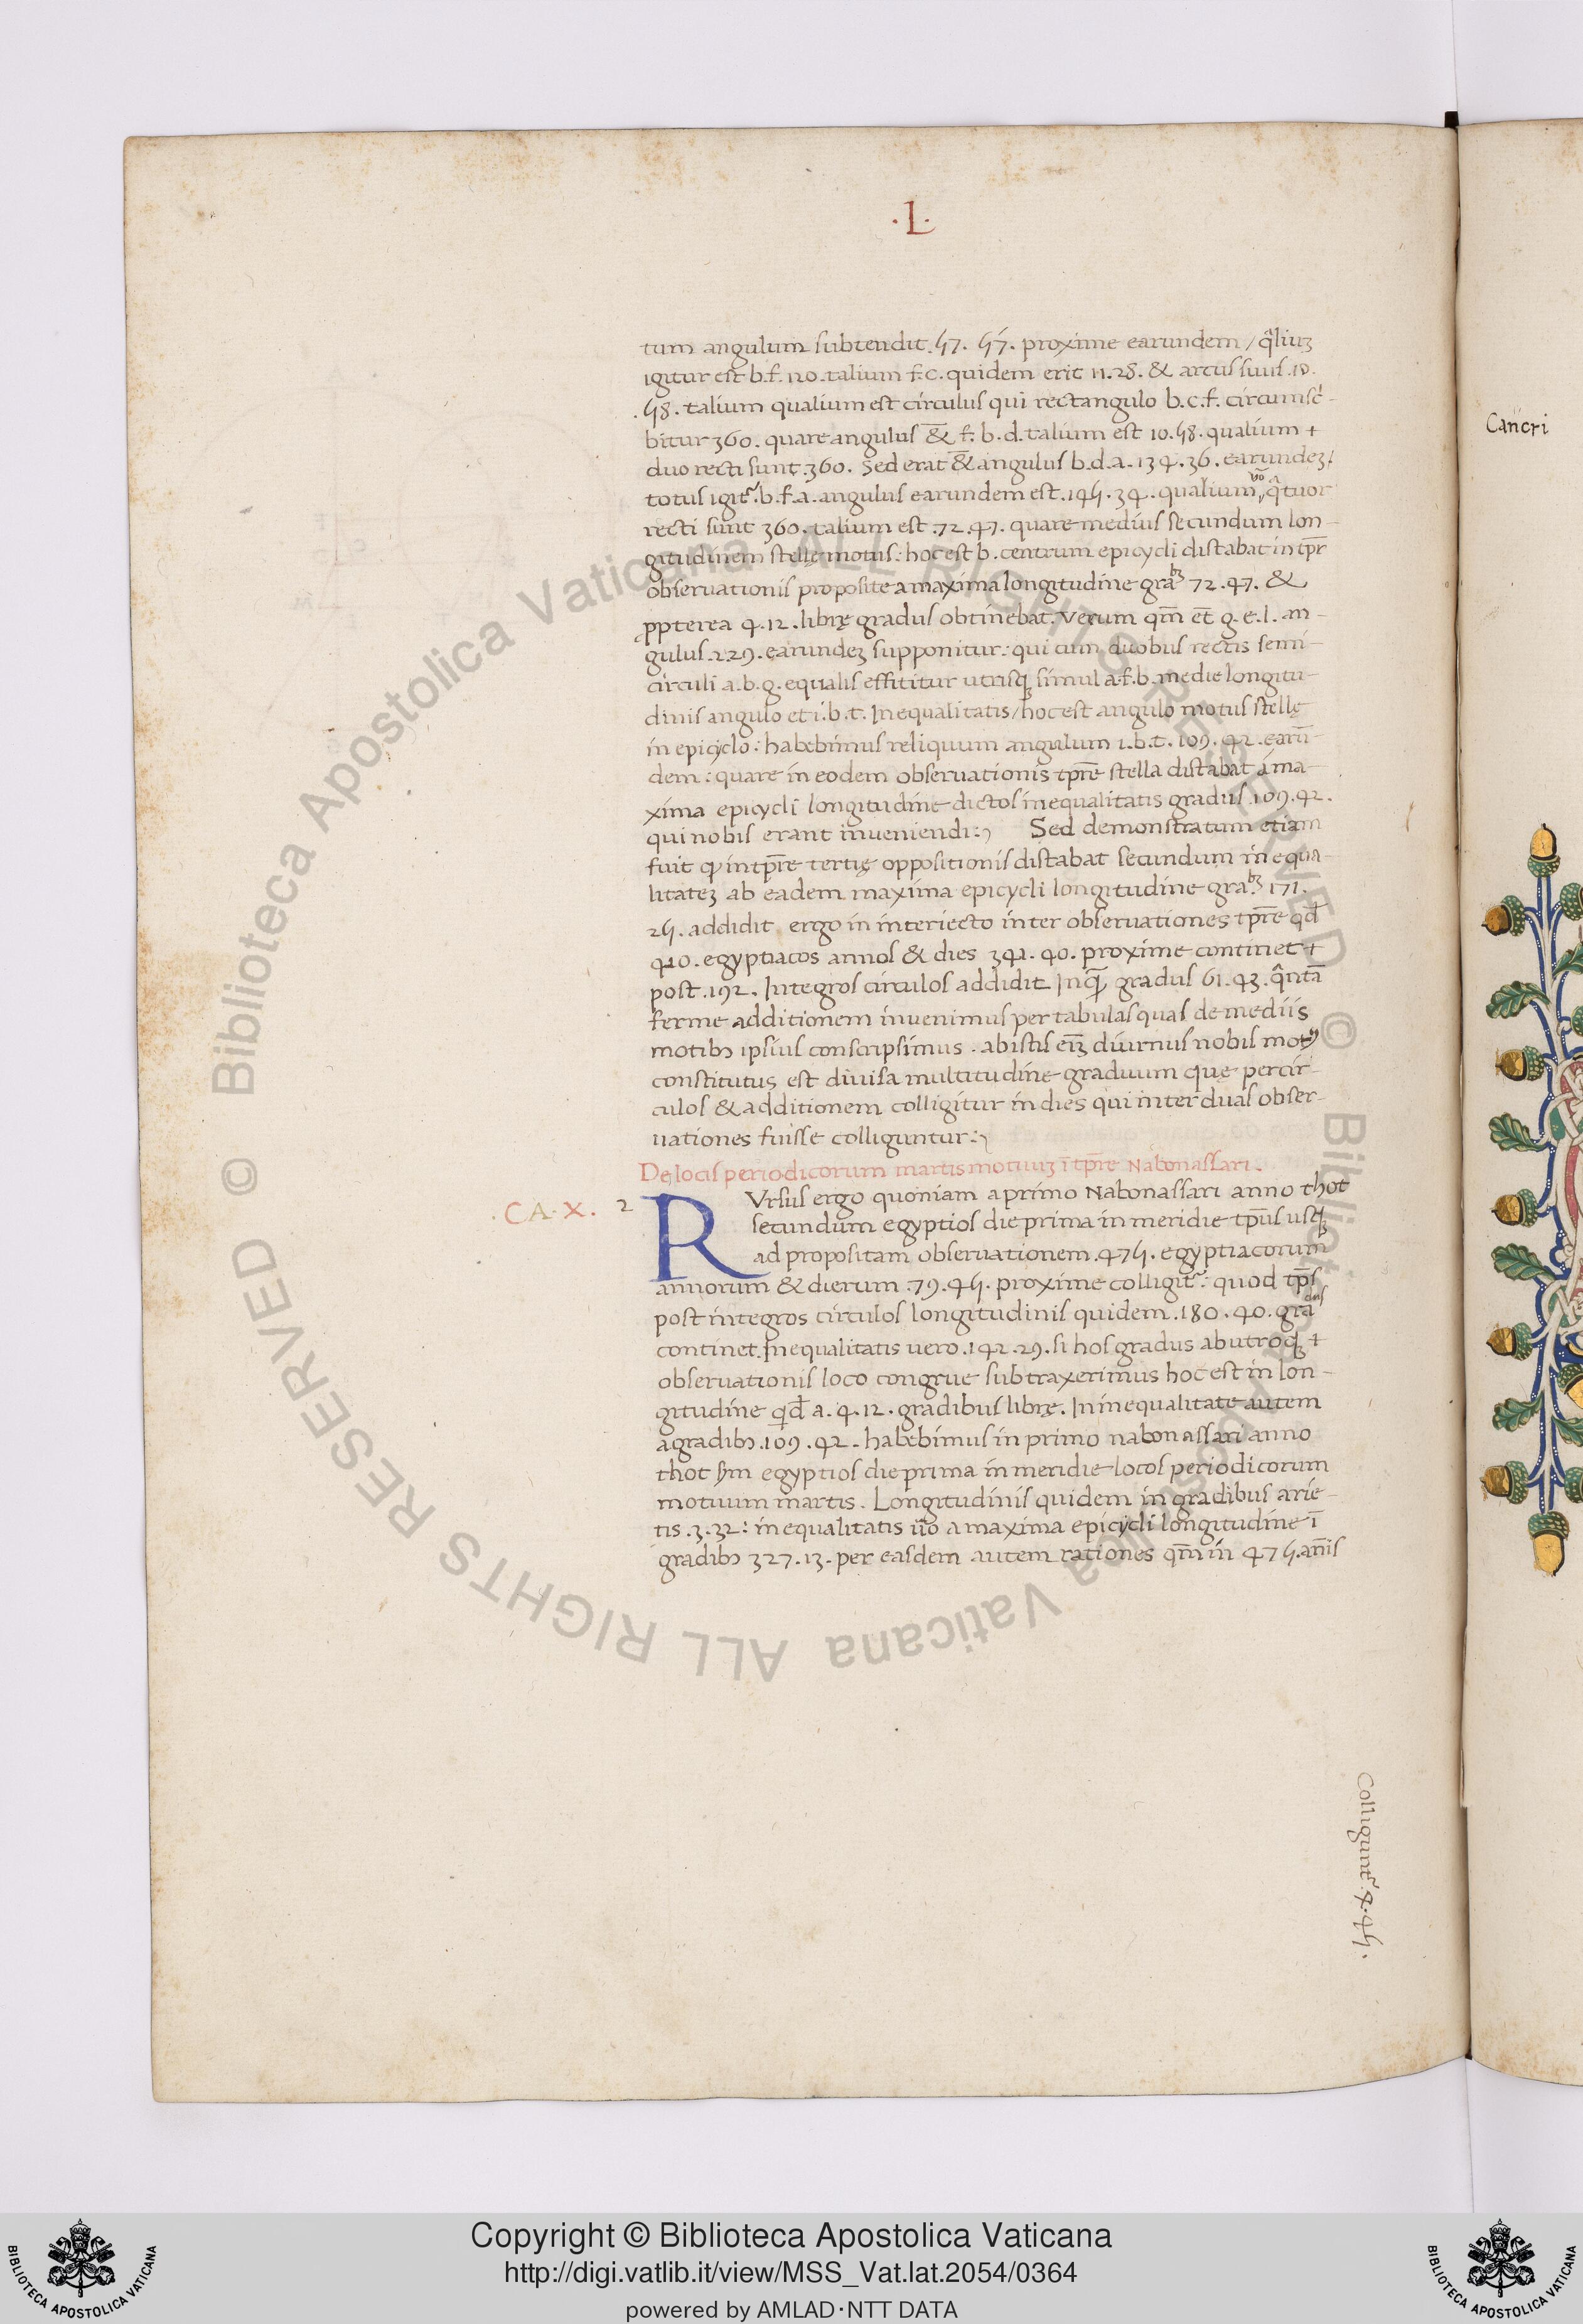 .L.
tum angulum subtendit .57. 57. proxime earundem / q̃liuʒ
igitur est b.f. 120. talium f.c. quidem erit 11.28. & arcus suus .10.
.58. talium qualium est circulus qui rectangulo b.c.f. circumsc̉-
bitur 360. quare angulus &̄ f. b. d. talium est 10.58. qualium +
duo recti sunt .360. Sed erat &̄ angulus b.d.a. 134.36. earundeʒ /
totus igit᷑ .b.f.a. angulus earundem est .145.34. qualium ṽo q̃tuor
recti sunt 360. talium est .72.47. quare medius secundum lon-
gitudinem stellę motus: hoc est b. centrum epicycli distabat in tp̄r
obseruationis proposite a maxima longitudine gra^bʒ 72.47. &
ꝓpterea 4.12. librę gradus obtinebat. Verum qm̄ et̄ g.e.l. an-
gulus .229. earundeʒ supponitur: qui cum duobus rectis semi-
circuli a.b.g. equalis effititur utrisqʒ simul a.f.b. medie longitu-
dinis angulo et i.b.t. Inequalitatis / hoc est angulo motus stellę
in epicyclo: habebimus reliquum angulum i.b.t. 109.42. earū-
dem: quare in eodem obseruationis tp̄re stella distabat á ma-
xima epicycli longitudine dictos inequalitatis gradus .109.42.
qui nobis erant inueniendi:, Sed demonstratum etiam
fuit ꝙ in tp̄re tertię oppositionis distabat secundum inequa-
litateʒ ab eadem maxima epicycli longitudine gra^bʒ 171.
25. addidit ergo in interiecto inter obseruationes tp̄re qd̄
410. egyptiacos annos & dies 341.40. proxime continet +
post .192. Integros circulos addidit Inq̄ʒ gradus 61.43. q̃ntā
ferme additionem inuenimus per tabulas quas de mediis
motibꝰ ipsius conscripsimus. ab istis eīʒ diurnus nobis motꝰ
constitutus est diuisa multitudine graduum quę per cir-
culos & additionem colligitur in dies qui inter duas obser-
uationes fuisse colliguntur:,
De locis periodicorum martis motuuʒ ī tp̄re Nabonassari.
.CA.X. 2
RVrsus ergo quoniam a primo Nabonassari anno thot
secundum egyptios die prima in meridie tp̄us usqʒ
ad propositam obseruationem .475. egyptiacorum
annorum & dierum .79.45. proxime colligit᷑: quod tp̄s
post integros circulos longitudinis quidem .180.40. gra^dus
continet. Inequalitatis uero .142.29. si hos gradus ab utroqʒ +
obseruationis loco congrue subtraxerimus hoc est in lon-
gitudine qd̄ a. 4.12. gradibus librę. In inequalitate autem
a gradibꝰ .109.42. habebimus in primo nabonassari anno
thot s̄m egyptios die prima in meridie locos periodicorum
motuum martis. Longitudinis quidem in gradibus arie-
tis .3.32: inequalitatis ūo a maxima epicycli longitudine ī
gradibꝰ 327.13. per easdem autem rationes qm̄ in 475. an̄is
Colligunt᷑ .&.45.
Cancri
Copyright © Biblioteca Apostolica Vaticana
http://digi.vatlib.it/view/MSS_Vat.lat.2054/0364
powered by AMLAD·NTT DATA
BIBLIOTECA APOSTOLICA VATICANA
BIBLIOTECA APOSTOLICA VATICANA
© Biblioteca Apostolica Vaticana ALL RIGHTS RESERVED © Biblioteca Apostolica Vaticana ALL RIGHTS RESERVED